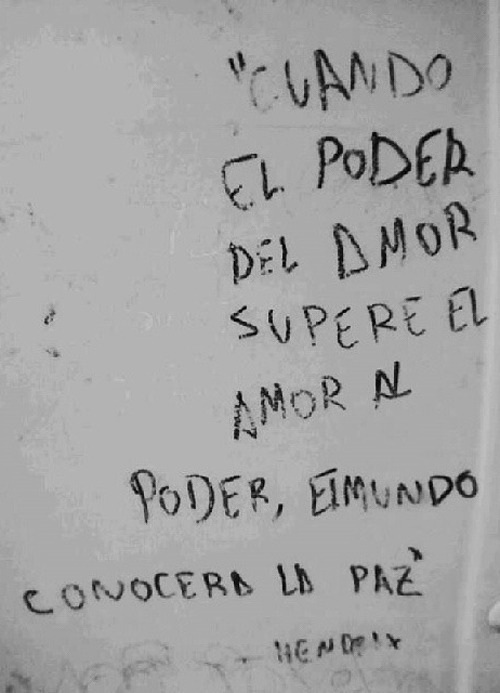 "CUANDO
EL PODER
DEL AMOR
SUPERE EL
AMOR AL
PODER, El MUNDO
CONOCERA LA PAZ"
- HENDRIX